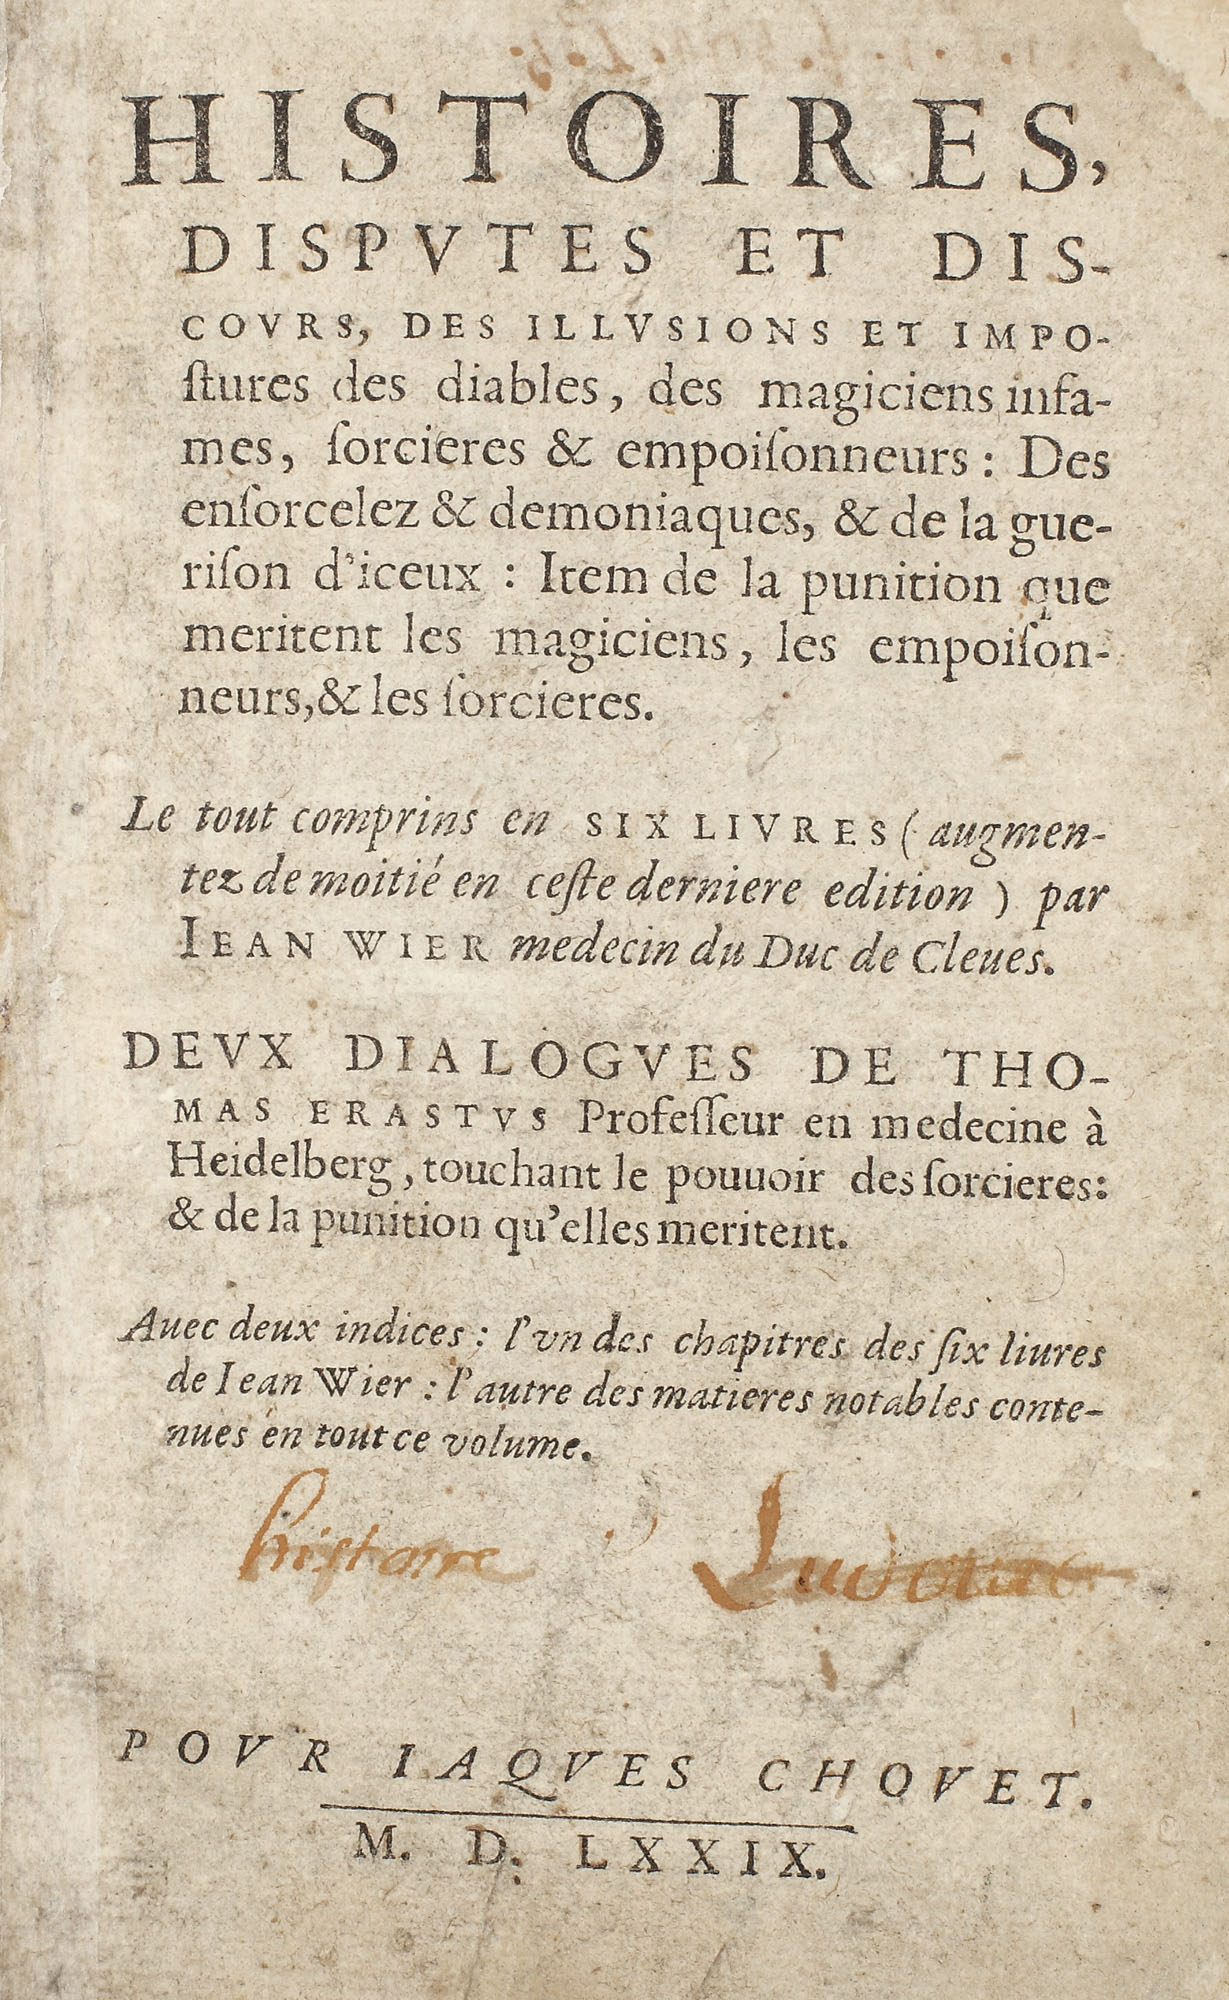 HISTOIRES,
DISPVTES ET DIS-
COVRS, DES ILLVSIONS ET IMPO-
ſtures des diables, des magiciens infa-
mes, ſorcieres & empoiſonneurs : Des
enſorcelez & demoniaques, & de la gue-
riſon d'iceux : Item de la punition que
meritent les magiciens, les empoiſon-
neurs, & les ſorcieres.
Le tout comprins en SIX LIVRES ( augmen-
tez de moitié en ceſte derniere edition ) par
IEAN WIER medecin du Duc de Cleues.
DEVX DIALOGVES DE THO-
MAS ERASTVS Profeſſeur en medecine à
Heidelberg, touchant le pouuoir des ſorcieres:
& de la punition qu'elles meritent.
Auec deux indices : l'vn des chapitres des ſix liures
de Iean Wier : l'autre des matieres notables conte-
nues en tout ce volume.
histoire
POVR IAQVES CHOVET.
M. D. LXXIX.